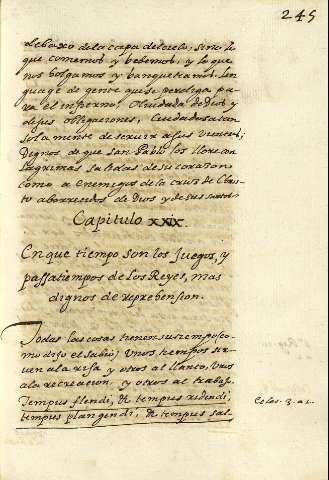 245
debaxo dela capa del cielo, sino lo
que comemos y bebemos, y lo que
nos holgamos y banqueteamos. Len
guage de gente que se perdiga pa
ra el infierno. Olvidada de Dios y
de sus obligaciones, Cuidadosa tan
solamente de servir a sus vientres;
Dignos de que san Pablo los llore con
lagrimas salidas de su corazon
como a enemigos de la cruz de Chris
to aborrecidos de Dios y de sus
Capitulo XXIX.
En que tiempo son los Juegos, y
passatiempos de los Reyes, mas
dignos de reprehension.
Todas las cosas tienen su tiempo (co
mo dijo el sabio) Unos tiempos sir
ven a la risa y otros al llanto, Unos
a la recreacion, y otros al trabajo.
Tempus flendi, & tempus ridendi,
tempus plangendi, & tempus sal
Eccles. 3.